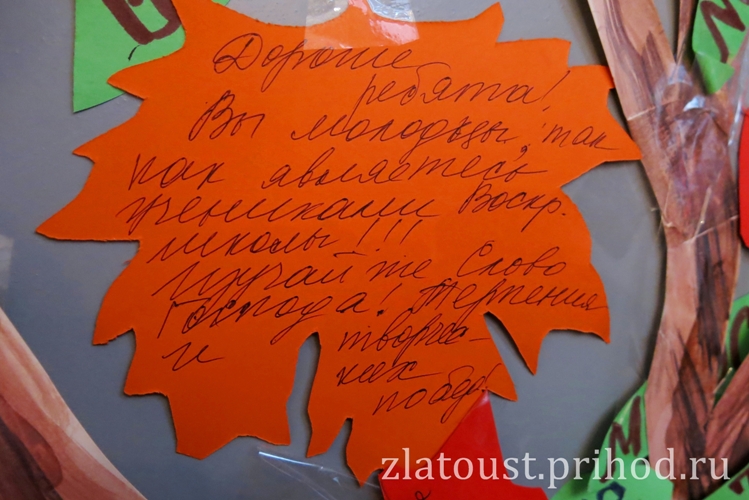 Дорогие
ребята!
Вы молодцы, так
как являетесь
учениками Воскр.
школы!!!
Изучайте Слово
Господа! Терпения
и творчес-
ких
побед!
zlatoust.prihod.ru